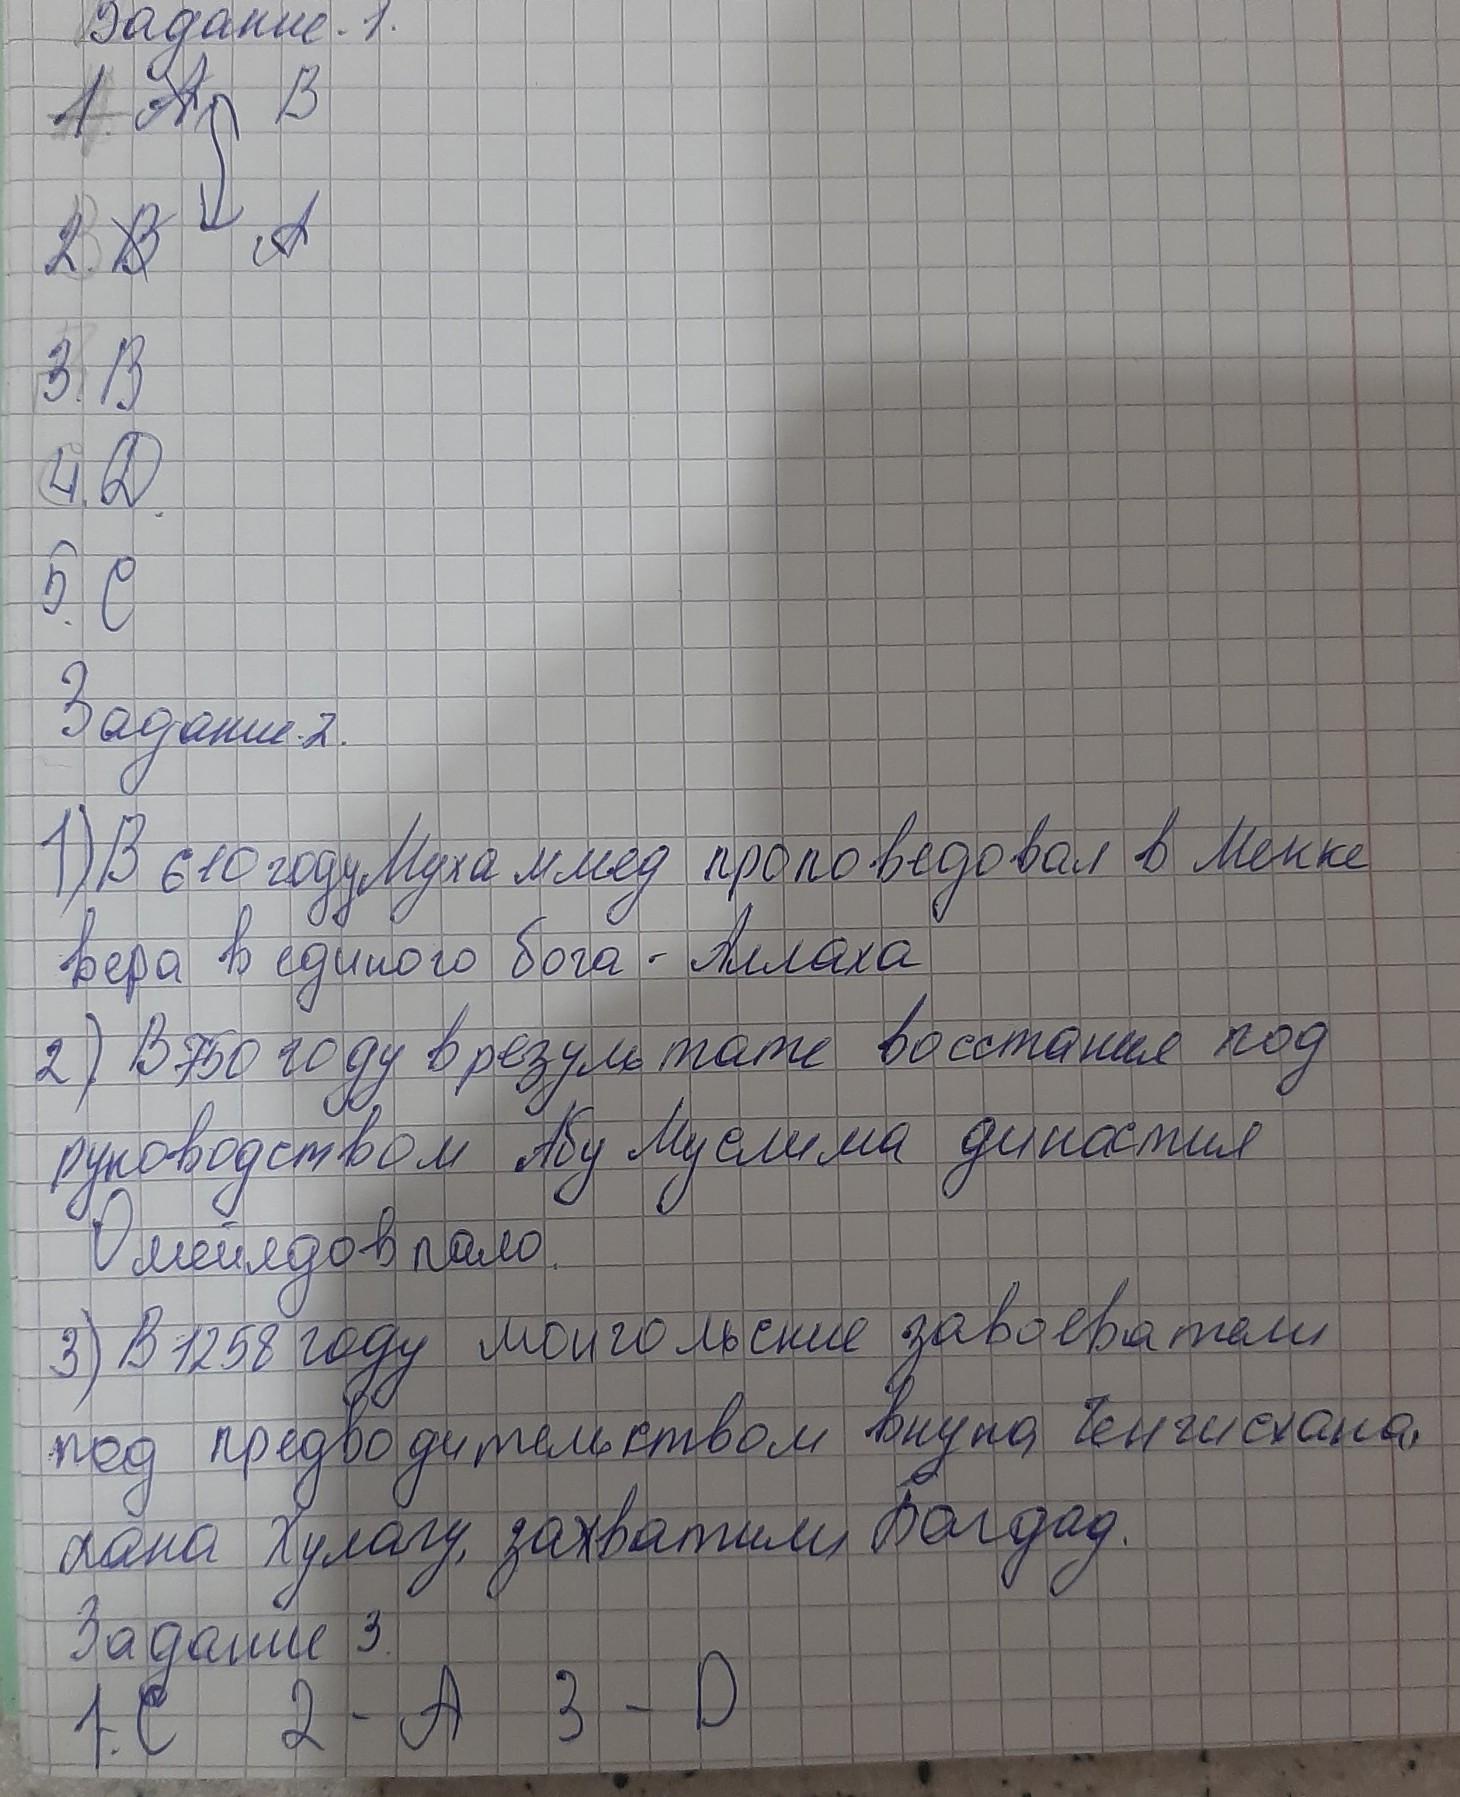 Задание.1.
1. A B
2. B A
3. B
4. D.
5. C
Задание.2.
1) В 610 году Мухаммед проповедовал в Мекке
вера в единого бога - Аллаха
2) В 750 году в результате восстания под
руководством Абу Муслима династия
Омейядов пало.
3) В 1258 году монгольские завоеватели
под предводительством внука Ченгисхана,
хана Хулагу, захватили Багдад.
Задание 3.
1. C 2 - A 3 - D